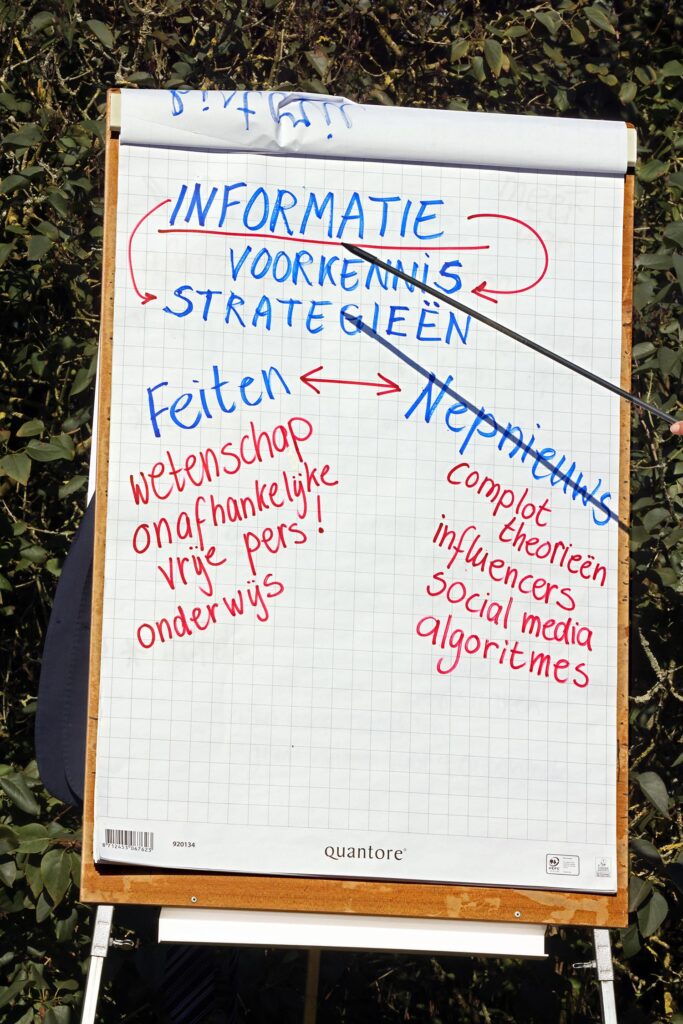 INFORMATIE
VOORKENNIS
STRATEGIEËN
Feiten
wetenschap
onafhankelijke
vrije pers!
onderwijs
Nepnieuws
complot
theorieën
influencers
social media
algoritmes
8712453067623
920134
quantore